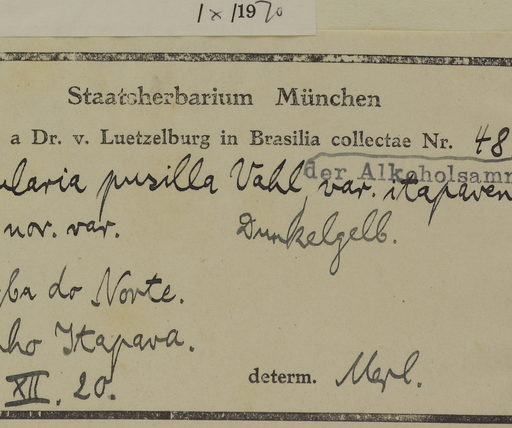 1 x 1970
Staatsherbarium München
a Dr. v. Luetzelburg in Brasilia collectae Nr. 48
der Alkoholsamm
ularia pusilla Vahl, var. itapaven
nov. var. Dunkelgelb.
yba do Norte.
nho Itapava.
XII. 20. determ. Merl.